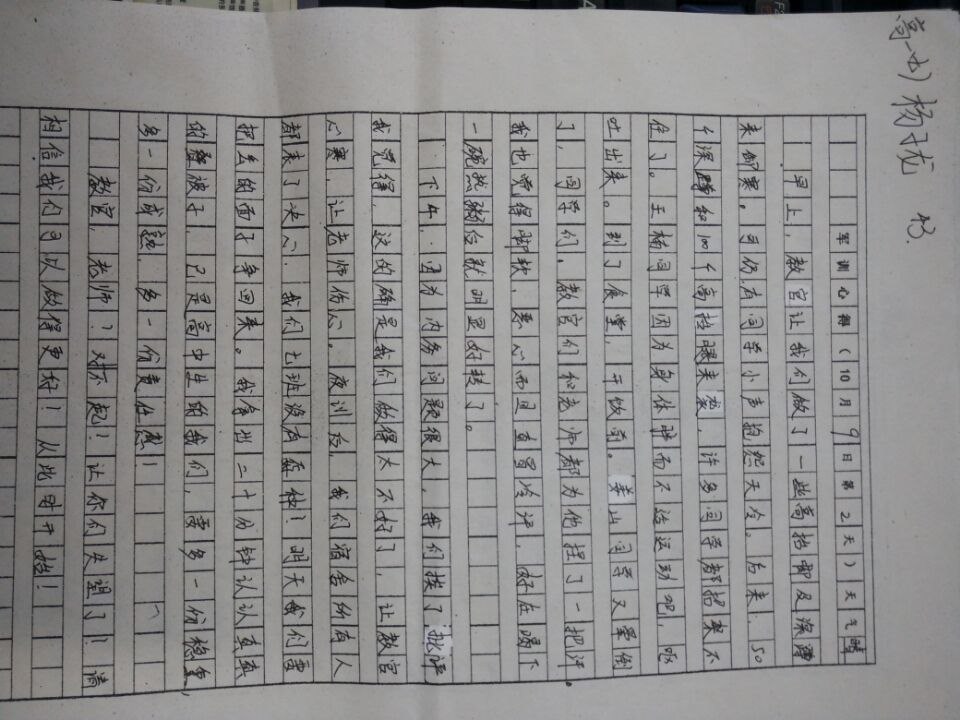 高一(七) 杨子龙 43.
军训心得(10月9日第2天)天气晴
早上,教官让我们做了一些高抬脚及深蹲
来御寒。可仍有同学小声抱怨天冷。后来,50
个深蹲和100个高抬腿来袭,许多同学都招架不
住了。王楠同学因为身体胖而不适运动吧,呕
吐出来。到了食堂,开饭前。姜山同学又晕倒
了,同学们、教官们和老师都为他捏了一把汗。
我也觉得脚软、恶心而且直冒冷汗,好在喝下
一碗热粥后就明显好转了。
下午,因为内务问题很大,我们挨了批评
我觉得,这的确是我们做得太不好了,让教官
心寒,让老师伤心。夜训后,我们宿舍所有人
都来了决心:我们七班没有孬种!明天我们要
把丢的面子争回来。我拿出二十分钟认认真真
的叠被子,已是高中生的我们,要多一份稳重,
多一份成熟,多一份责任感!
教官,老师?对不起!让你们失望了!请
相信我们可以做得更好!从此时开始!